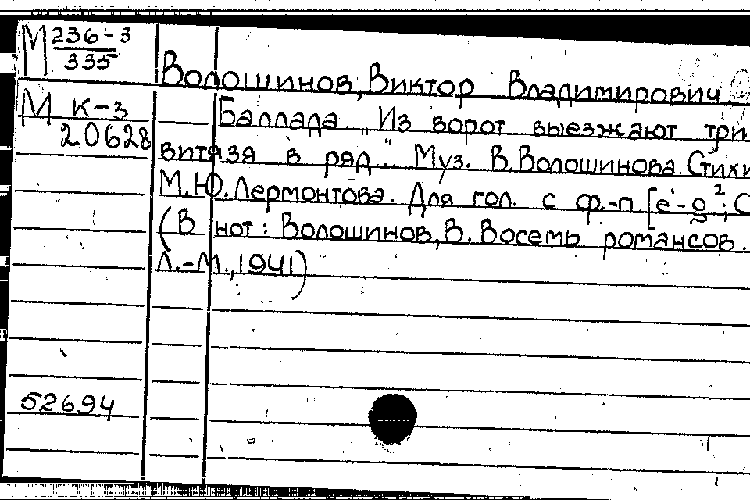 М 236-3
335
Волошинов, Виктор Владимирович
М К-3
20628
Баллада "Из ворот выезжают три
витязя в ряд." Муз. В. Волошинова Стихи
М.Ю. Лермонтова. Для гол. с ф.-п.
(В нот: Волошинов, В. Восемь романсов.
Л.-М., 1941)
52694